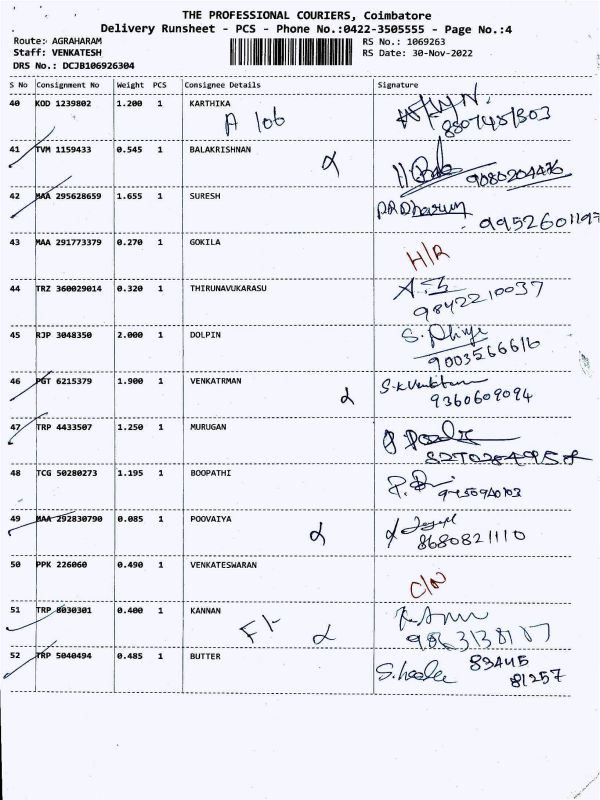 THE PROFESSIONAL COURIERS, Coimbatore
Delivery Runsheet - PCS - Phone No.:0422-3505555 - Page No.:4
Route: AGRAHARAM
Staff: VENKATESH
DRS No.: DCJB106926304
RS No.: 1069263
RS Date: 30-Nov-2022
S No Consignment No Weight PCS Consignee Details Signature
40 KOD 1239802 1.200 1 KARTHIKA
A 106
41 TVM 1159433 0.545 1 BALAKRISHNAN
9080204476
42 MAA 295628659 1.655 1 SURESH
9952601197
43 MAA 291773379 0.270 1 GOKILA H/R
44 TRZ 360029014 0.320 1 THIRUNAVUKARASU
9842210037
45 RJP 3048350 2.000 1 DOLPIN
9003566616
46 PGT 6215379 1.900 1 VENKATRMAN
9360609094
47 TRP 4433507 1.250 1 MURUGAN
48 TCG 50280273 1.195 1 BOOPATHI
49 MAA 292830790 0.085 1 POOVAIYA
8680821110
50 PPK 226060 0.490 1 VENKATESWARAN
C/N
51 TRP 8030301 0.400 1 KANNAN
52 TRP 5040494 0.485 1 BUTTER
83445
81257